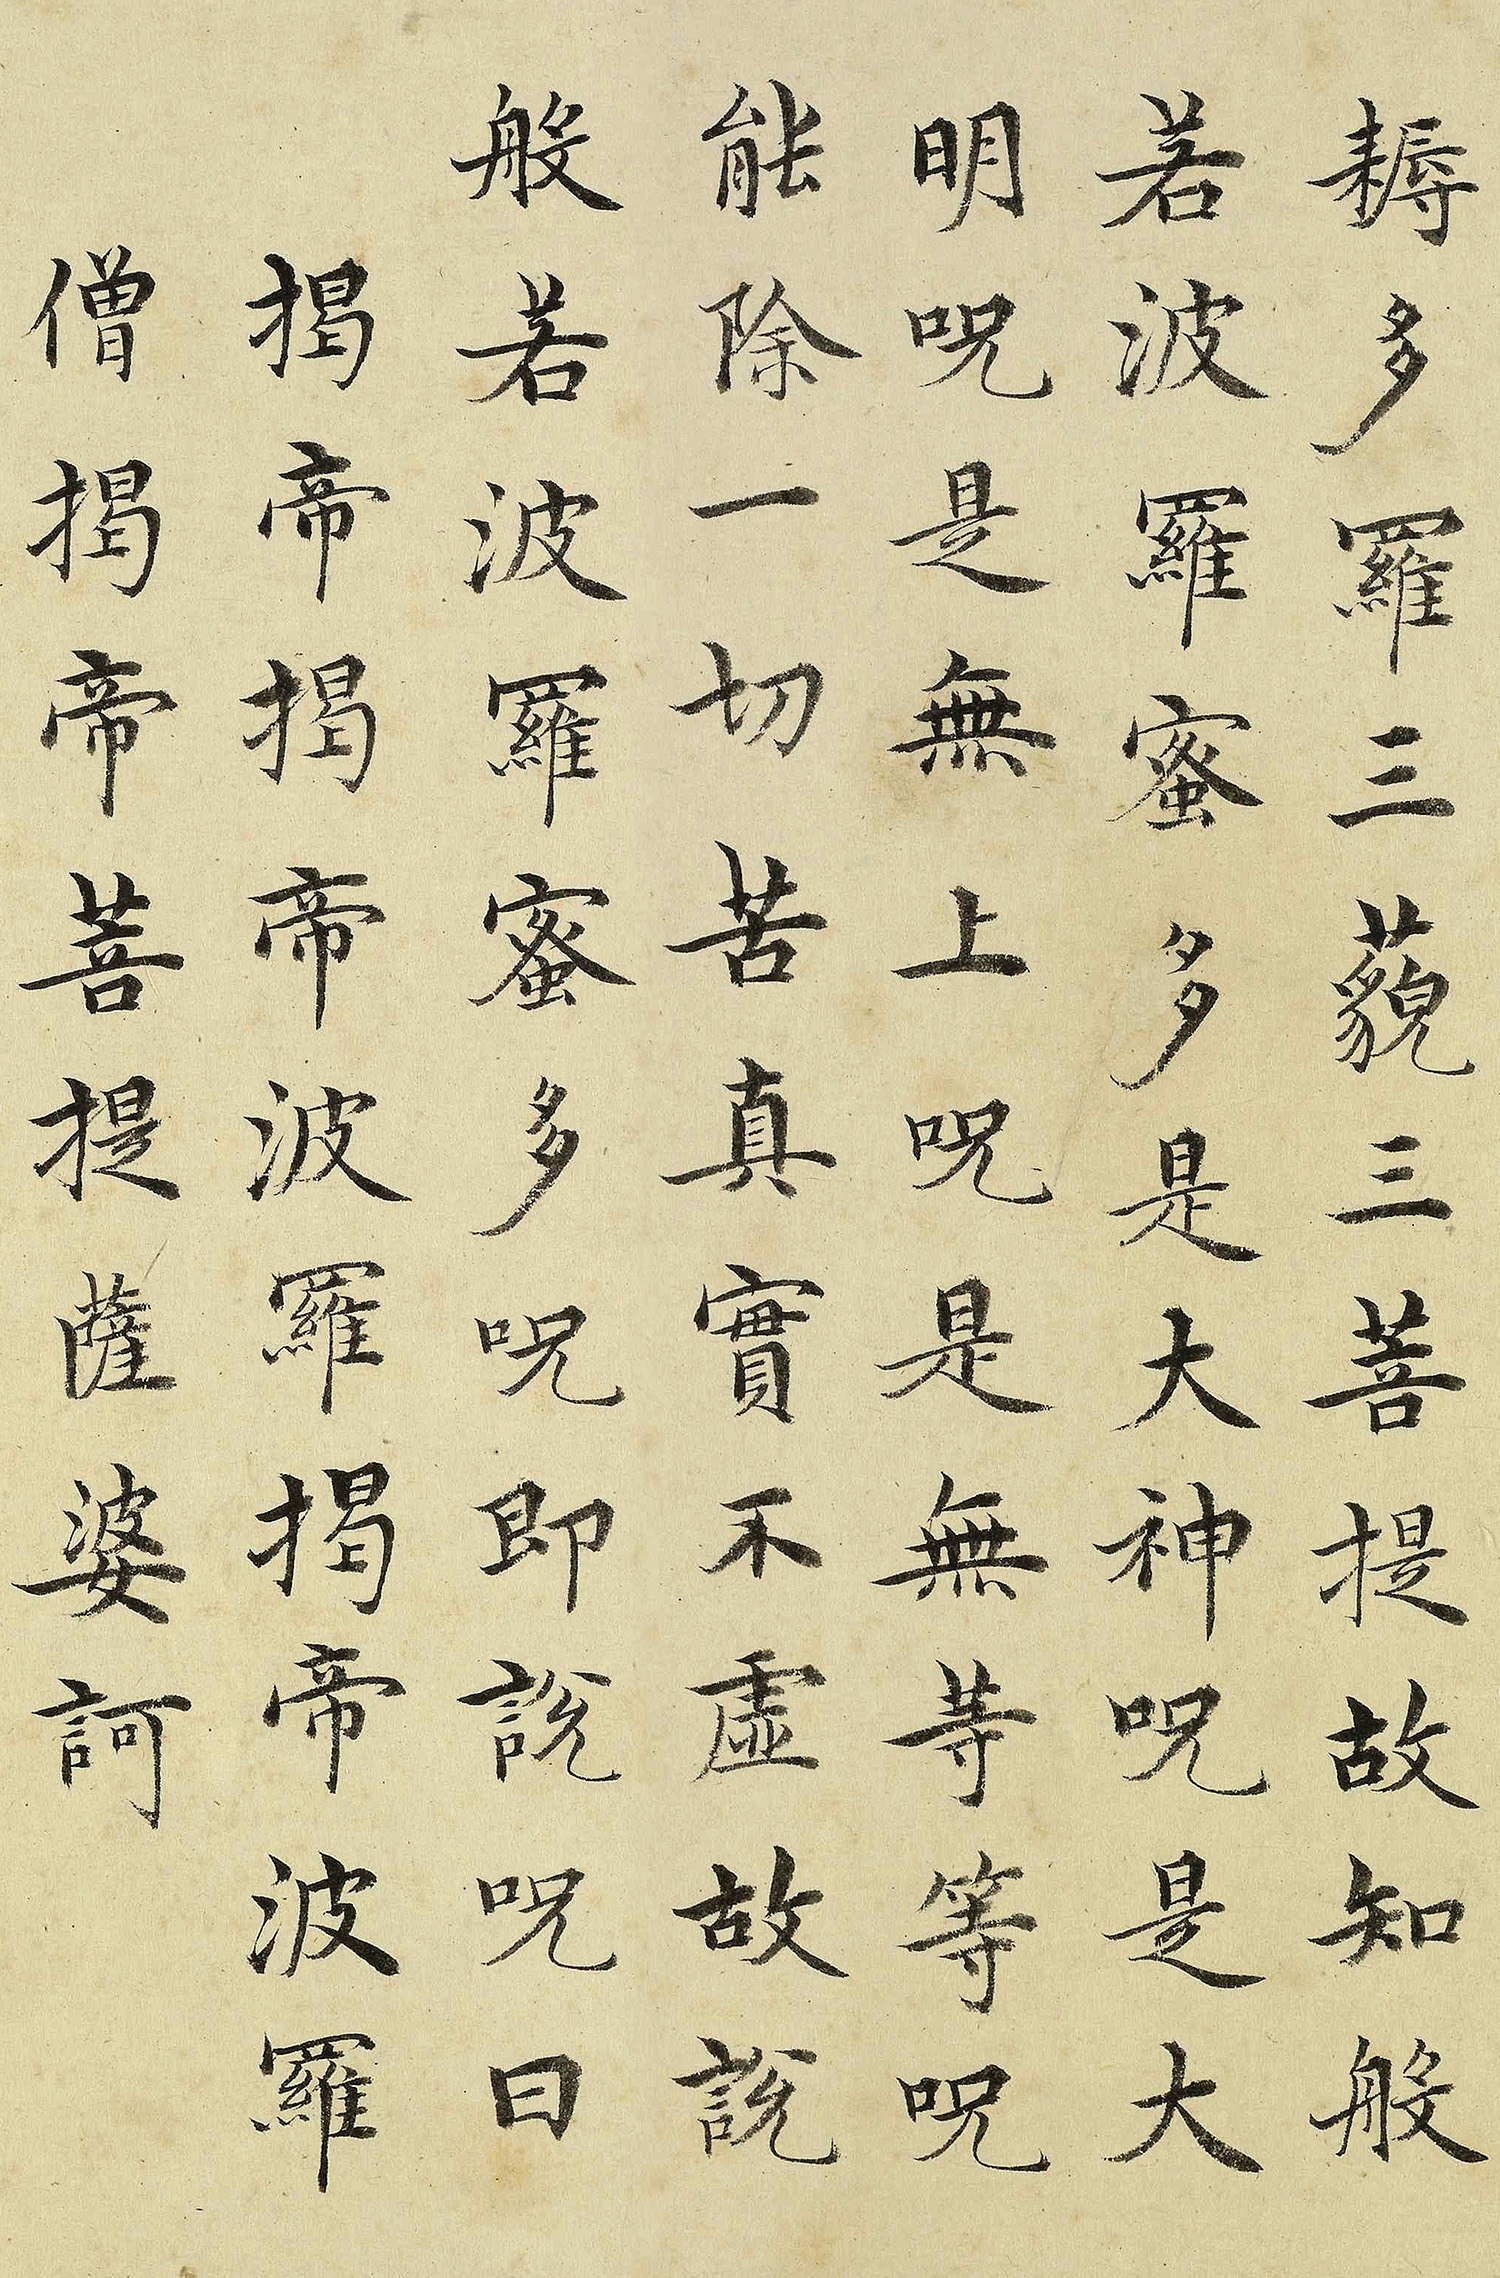 耨多羅三藐三菩提故知般
若波羅蜜多是大神咒是大
明咒是無上咒是無等等咒
能除一切苦真實不虛故說
般若波羅蜜多咒即說咒曰
揭帝揭帝波羅揭帝波羅
僧揭帝菩提薩婆訶